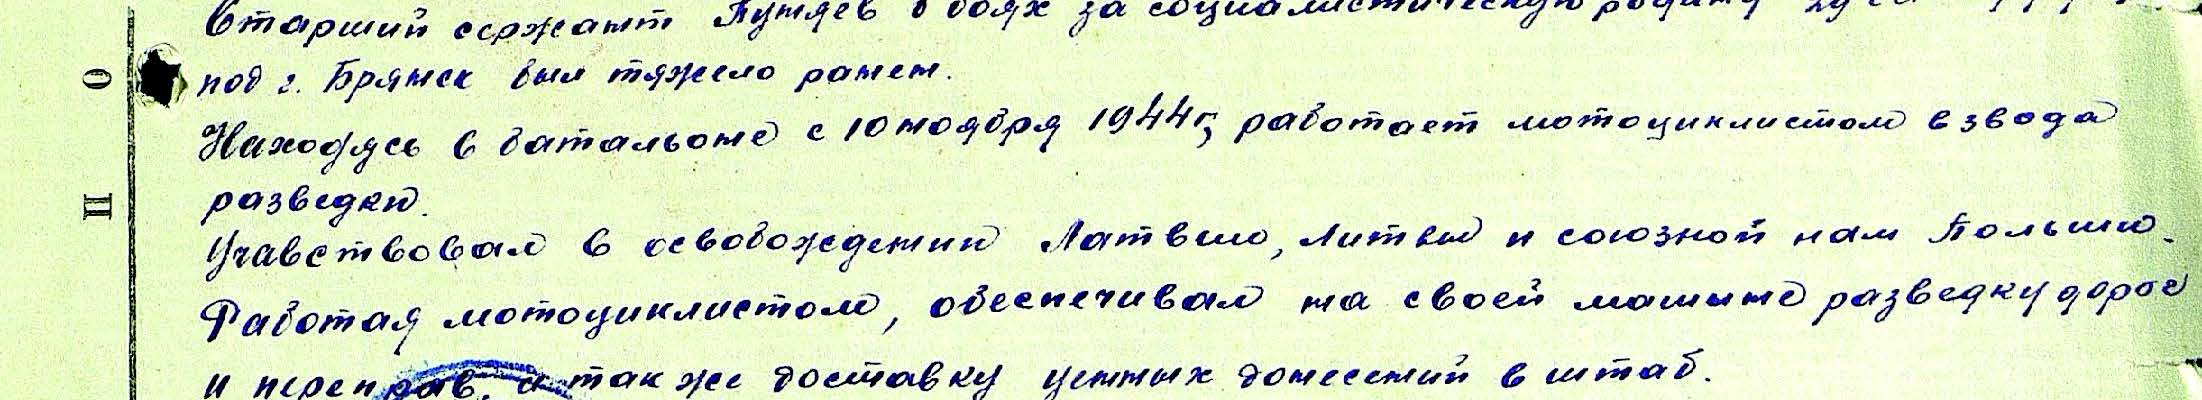 Старший сержант Путяев в боях за социалистическую родину
под г. Брянск был тяжело ранен.
Находясь в батальоне с 10 ноября 1944 г, работает мотоциклистом взвода
разведки.
Учавствовал в освобождении Латвии, Литвы и союзной нам Польши.
Работая мотоциклистом, обеспечивал на своей машине разведку дорог
и переправ, а так же доставку ценных донесений в штаб.
О
П